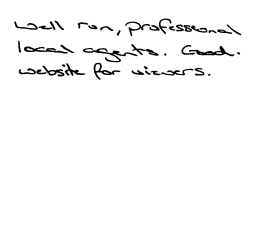 Well run, professional
local agents. Good.
website for viewers.